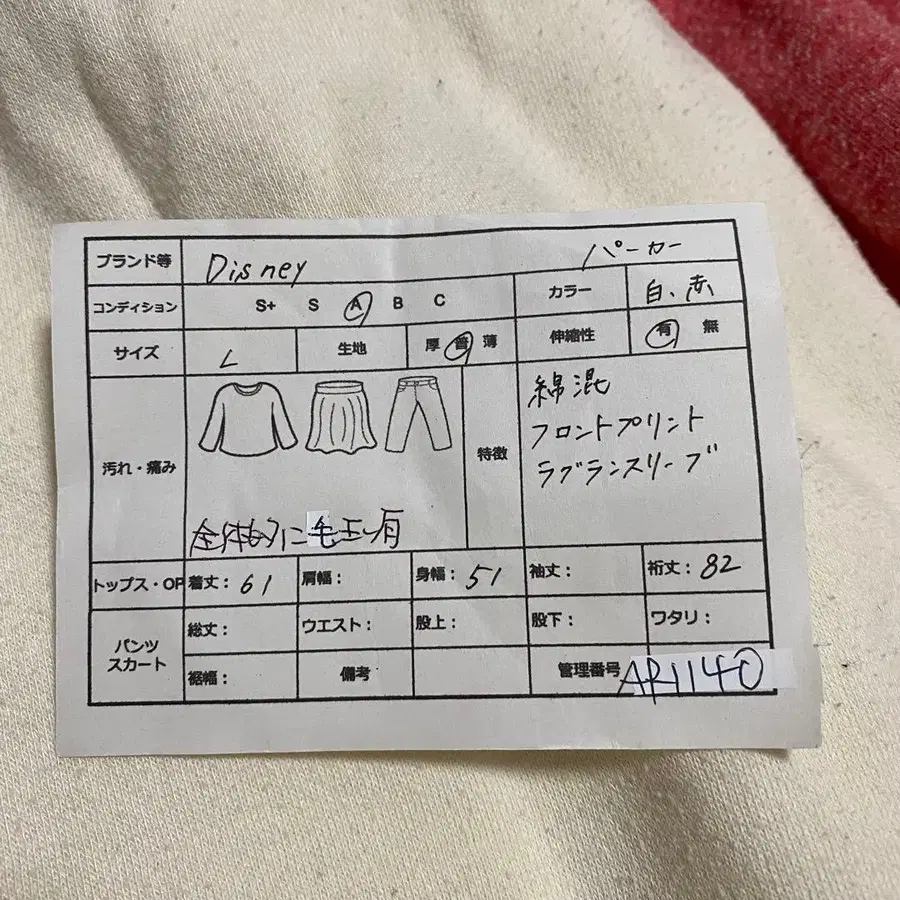 ブランド等 Disney パーカー
コンディション S+ S A B C カラー 白、赤
サイズ L 生地 厚 普 薄 伸縮性 有 無
汚れ・痛み 特徴
綿混
フロントプリント
ラグランスリーブ
全体的に毛玉有
トップス・OP 着丈：61 肩幅： 身幅：51 袖丈： 裄丈：82
パンツ
スカート
総丈： ウエスト： 股上： 股下： ワタリ：
裾幅： 備考 管理番号 AR1140